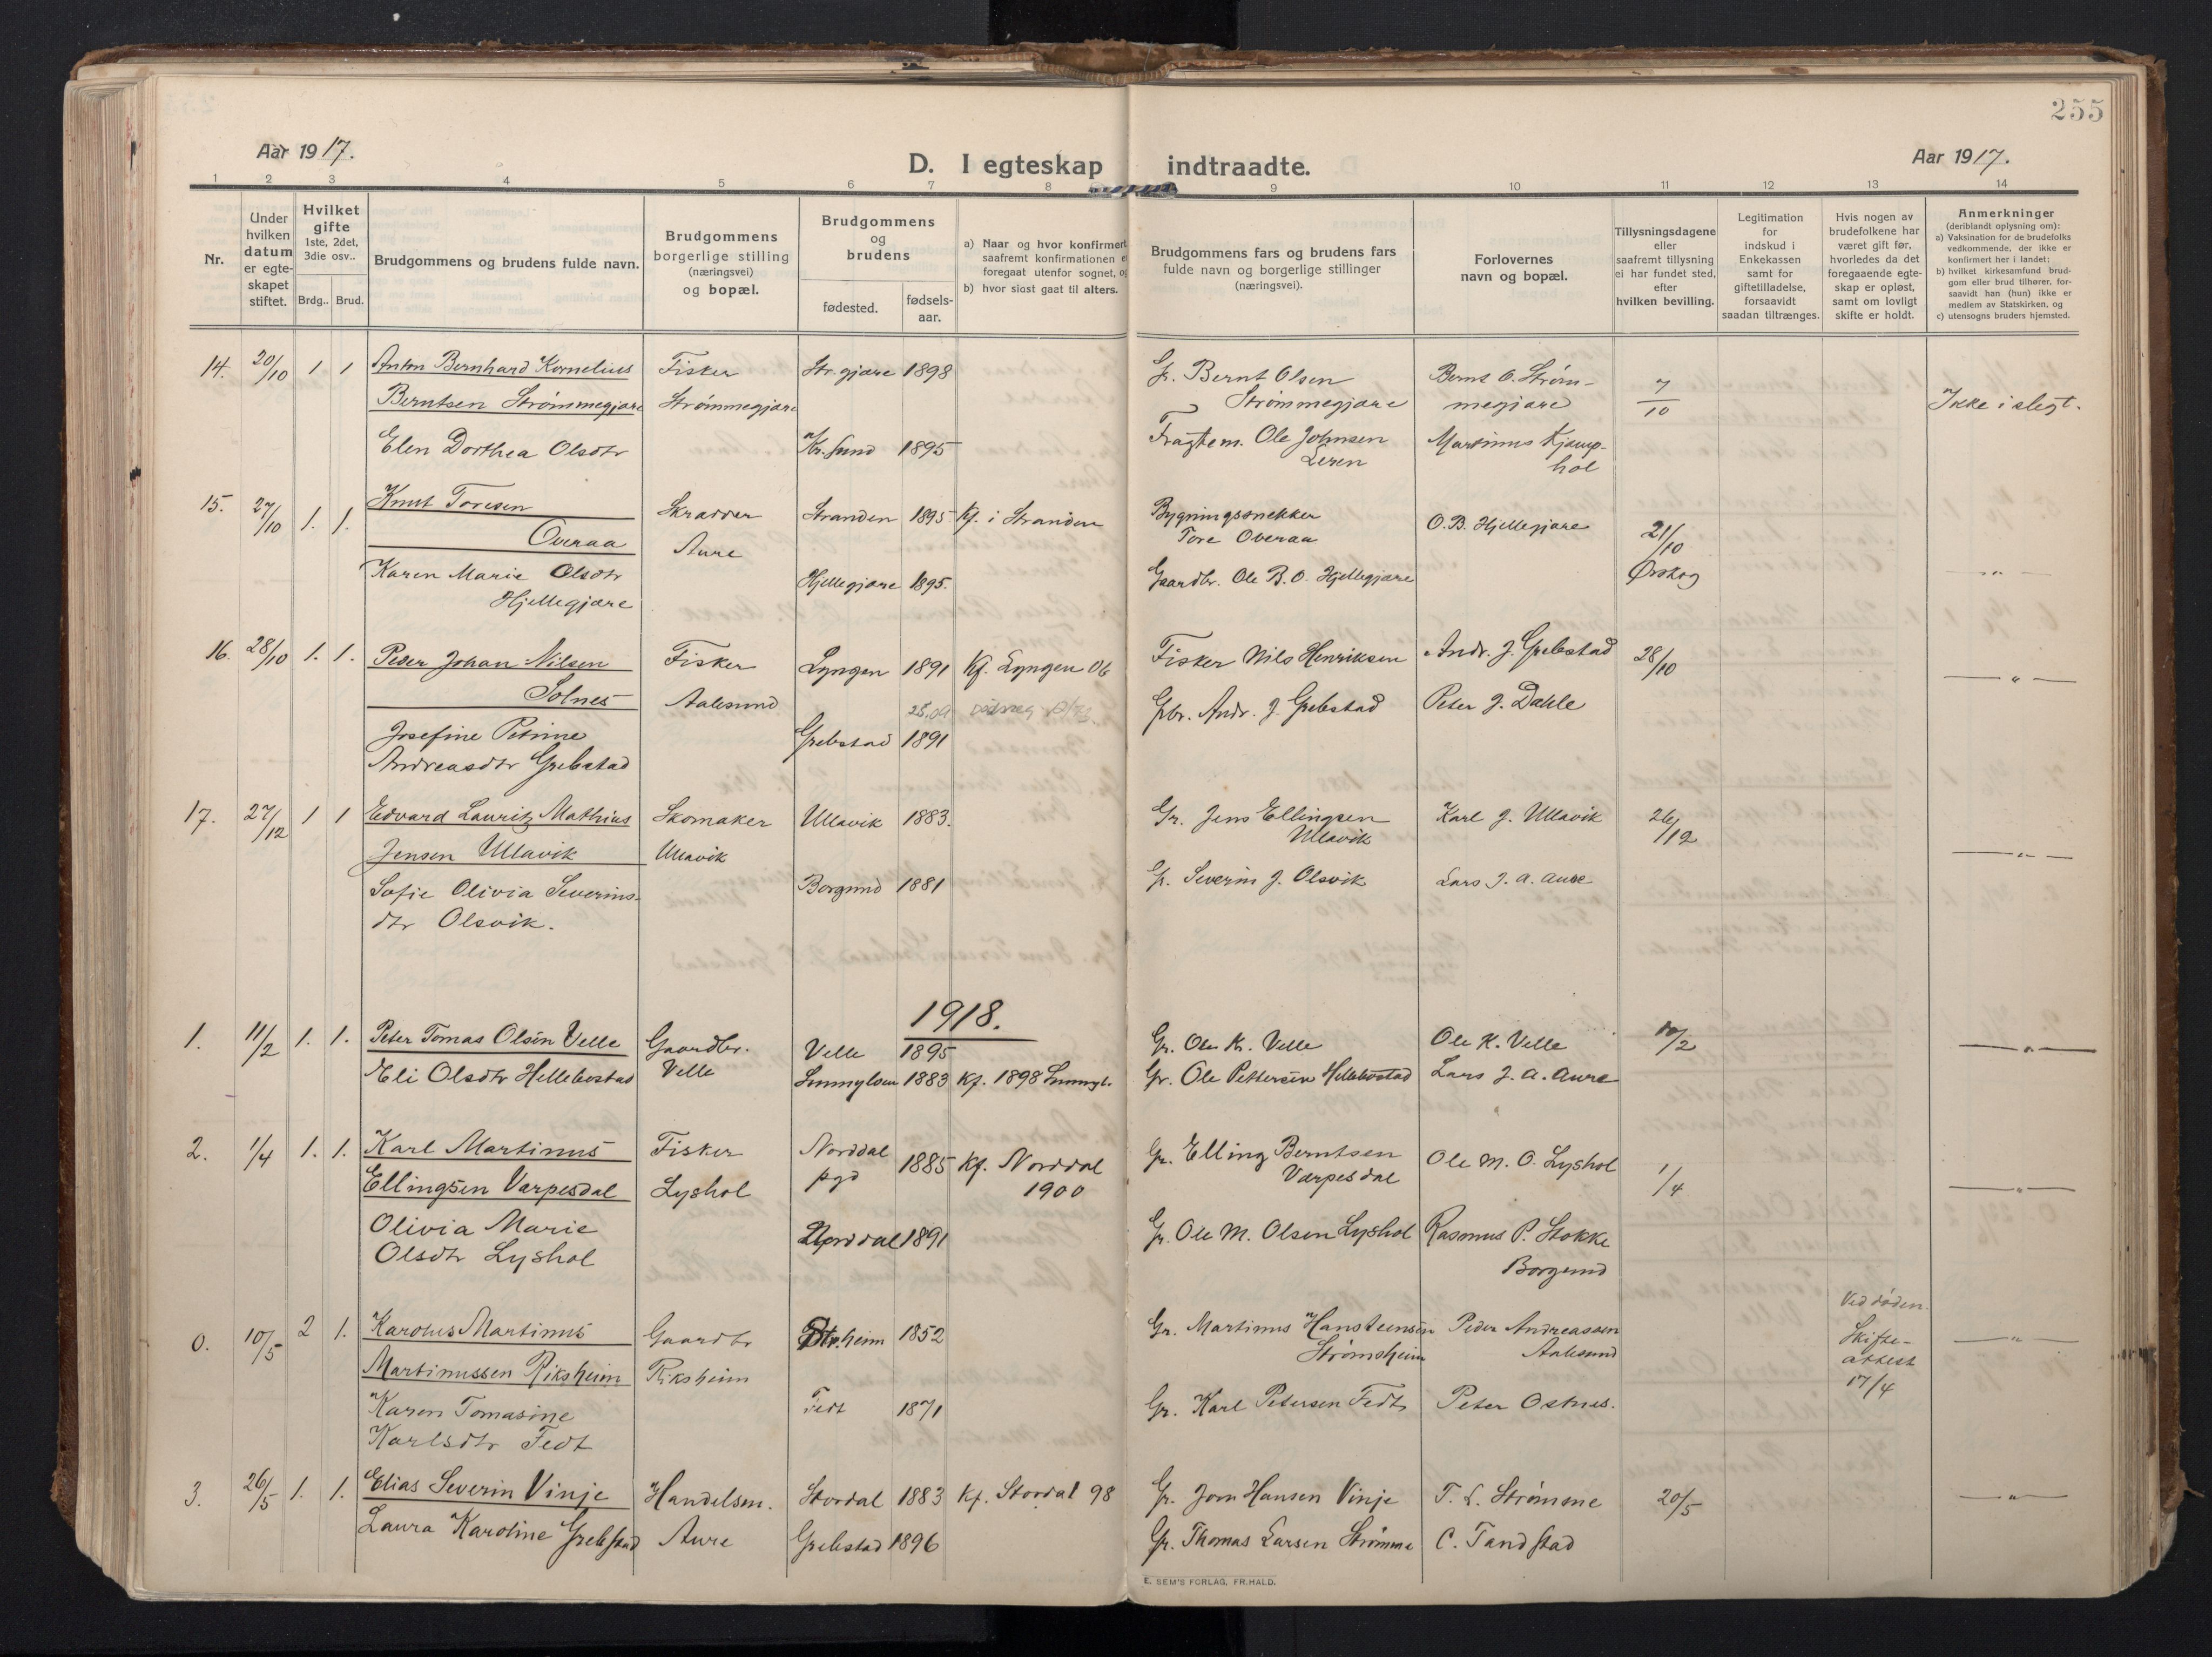 255
Aar 1917.
D. I egteskap indtraadte.
Aar 1917.
1 2 3 4 5 6 7 8 9 10 11 12 13 14
Nr.
Under hvilken datum er egte-skapet stiftet.
Hvilket gifte 1ste, 2det, 3die osv..
Brdg.. Brud.
Brudgommens og brudens fulde navn.
Brudgommens borgerlige stilling (næringsvei) og bopæl.
Brudgommens og brudens
fødested. fødsels-aar.
a) Naar og hvor konfirmert saafremt konfirmationen foregaat utenfor sognet,
b) hvor sidst gaat til alters.
Brudgommens fars og brudens fars fulde navn og borgerlige stillinger (næringsvei).
Forlovernes navn og bopæl.
Tillysningsdagene eller saafremt tillysning ei har fundet sted, efter hvilken bevilling.
Legitimation for indskud i Enkekassen samt for giftetilladelse, forsaavidt saadan tiltrænges.
Hvis nogen av brudefolkene har været gift før, hvorledes da det foregaaende egte-skap er opløst, samt om lovligt skifte er holdt.
Anmerkninger (deriblandt oplysning om):
a) Vaksination for de brudefolks vedkommende, der ikke er konfirmert her i landet;
b) hvilket kirkesamfund brud-gom eller brud tilhører, for-saavidt han (hun) ikke er medlem av Statskirken, og
c) utensogns bruders hjemsted.
14. 20/10 1 1 Anton Bernhard Kornelius Fisker Str.gjære 1898 Gr. Bernt Olsen Bernt O. Strøm- 7/10
Berntsen Strømmegjære Strømmegjære Strømmegjære megjære Ikke i slegt.
Elen Dorthea Olsdtr Kr.sund 1895 Fragtem. Ole Johnsen Martinus Kjämp-
Leren hol
15. 27/10 1. 1. Knut Toresen Skrædder Stranden 1895 Kf. i Stranden Bygningssnekker O.B. Hjellegjære 21/10
Overaa Aure Tore Overaa Ørskog
Karen Marie Olsdtr Hjellegjære 1895. Gaardbr. Ole B. O. Hjellegjære — " —
Hjellegjære
16. 28/10 1. 1. Peder Johan Nilsen Fisker Lyngen 1891 Kf. Lyngen 06 Fisker Nils Henriksen Andr. J. Grebstad 28/10
Solnes Aalesund — " —
Josefine Petrine Grebstad 1891 Gbr. Andr. J. Grebstad Peter J. Dahle
Andreasdtr Grebstad
17. 27/12 1 1 Edvard Lauritz Mathias Skomaker Ullavik 1883. Gr. Jens Ellingsen Karl J. Ullavik 26/12
Jensen Ullavik Ullavik Ullavik — " —
Sofie Olivia Severins- Borgund 1881 Gr. Severin J. Olsvik Lars J. A. Aure
dtr Olsvik.
1918.
1. 11/2 1. 1. Peter Tomas Olsen Velle Gaardbr. Velle 1895 Gr. Ole K. Velle Ole K. Velle 10/2 — " —
Eli Olsdtr Hellebostad Velle Sunnylven 1883 Kf. 1898 Sunnyl. Gr. Ole Pettersen Hellebostad Lars J. A. Aure
2. 1/4 1. 1. Karl Martinus Fisker Norddal 1885 Kf. Norddal Gr. Elling Berntsen Ole M. O. Lyshol 1/4
Ellingsen Varpesdal Lyshol pgd 1900 Varpesdal — " —
Olivia Marie 1891 Gr. Ole M. Olsen Lyshol Rasmus P. Stokke
Olsdtr Lyshol Borgund
0. 10/5 2 1. Karolus Martinus Gaardbr 1852 Gr. Martinus Hansteensen Peder Andreassen Ved døden. — " —
Martinussen Riksheim Riksheim Strømsheim Aalesund Skifte-
attest
17/4
Karen Tomasine Fedt 1871 Gr. Karl Petersen Fedt Peter Osnes.
Karlsdtr Fedt
3. 26/5 1. 1. Elias Severin Vinje Handelsm. Stordal 1883 Kf. Stordal 98 Gr. Jorn Hansen Vinje T. L. Strømme 20/5 — " —
Laura Karoline Grebstad Aure Grebstad 1896 Gr. Thomas Larsen Strømme C. Tandstad
E. SEM'S FORLAG, FR.HALD.